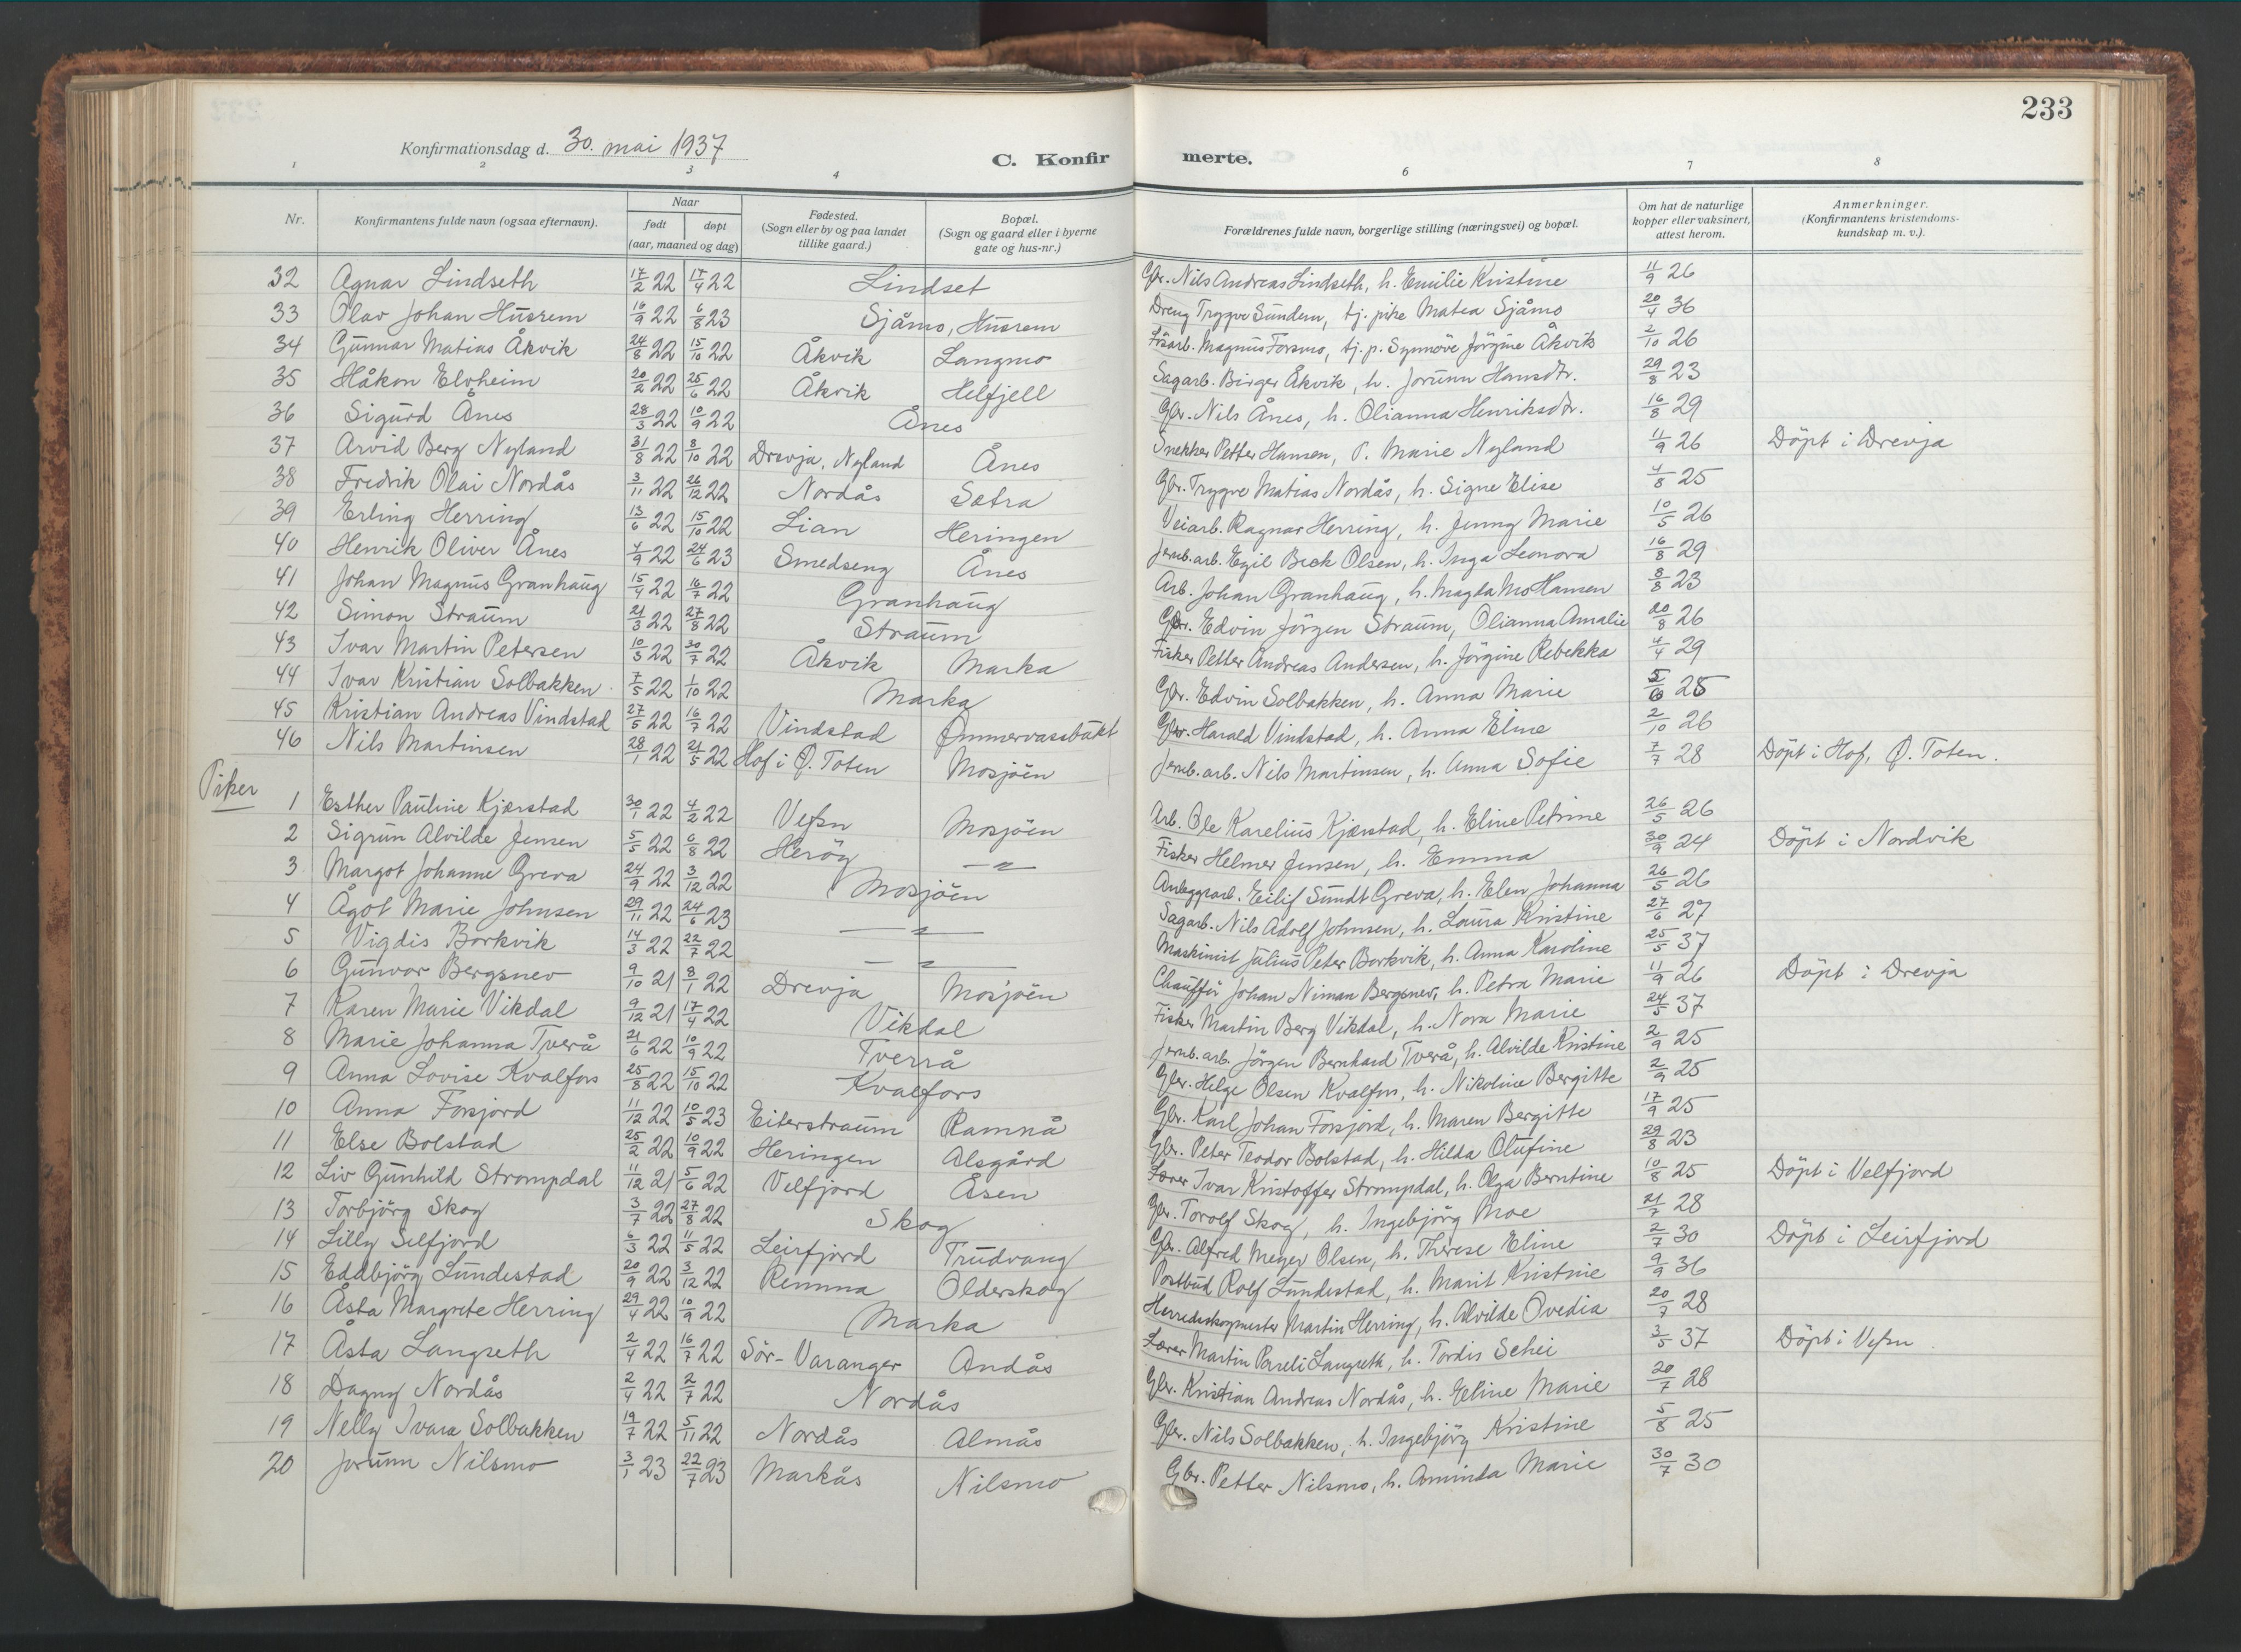 233
Konfirmationsdag d. 30. mai 1937
C. Konfir merte.
1 2 3 4 6 7 8
Nr. Konfirmantens fulde navn (ogsaa efternavn). Naar født døpt (aar, maaned og dag) Fødested. (Sogn eller by og paa landet tillike gaard.) Bopæl. (Sogn og gaard eller i byerne gate og hus-nr.) Forældrenes fulde navn, borgerlige stilling (næringsvei) og bopæl. Om hat de naturlige kopper eller vaksinert, attest herom. Anmerkninger. (Konfirmantens kristendoms-kundskap m. v.).
32 Agnar Lindseth 17/2 22 17/4 22 Lindset Gbr. Nils Andreas Lindseth, h. Emilie Kristine 11/9 26
33 Olav Johan Husrem 16/9 22 6/8 23 Sjåmo, Husrem Dreng Trygve Sundem, tj. pike Matea Sjåmo 20/4 36
34 Gunnar Matias Åkvik 24/8 22 15/10 22 Åkvik Langmo Lösarb. Magnus Forsmo, tj. p. Synnöve Jörgine Åkvik 2/10 26
35 Håkon Elvheim 20/2 22 25/6 22 Åkvik Helfjell Sagarb. Birger Åkvik, h. Jorunn Hansdtr. 29/8 23
36 Sigurd Ånes 28/3 22 10/9 22 Ånes Gbr. Nils Ånes, h. Olianna Henriksdtr. 16/8 29
37 Arvid Berg Nyland 31/8 22 8/10 22 Drevja, Nyland Ånes Snekker Petter Hansen, P. Marie Nyland 11/9 26 Döpt i Drevja
38 Fredrik Olai Nordås 3/11 22 26/12 22 Nordås Sætra Gbr. Trygve Matias Nordås, h. Signe Elise 4/8 25
39 Erling Herring 13/6 22 15/10 22 Lian Heringen Veiarb. Ragnar Herring, h. Jenny Marie 10/5 26
40 Henrik Oliver Ånes 4/9 22 24/6 23 Smedseng Ånes Jernb.arb. Egil Beck Olsen, h. Inga Leonora 16/8 29
41 Johan Magnus Granhaug 15/4 22 16/7 22 Granhaug Arb. Johan Granhaug, h. Magda Mo Hansen 8/8 23
42 Simon Straum 21/3 22 27/8 22 Straum Gbr. Edvin Jörgen Straum, Olianna Amalie 20/8 26
43 Ivar Martin Petersen 10/3 22 30/7 22 Åkvik Marka Fisker Petter Andreas Andersen, h. Jörgine Rebekka 4/4 29
44 Ivar Kristian Solbakken 7/5 22 1/10 22 Marka Gbr. Edvin Solbakken, h. Anna Marie 5/6 25
45 Kristian Andreas Vindstad 27/5 22 16/7 22 Vindstad Ömmervassbukt Gbr. Harald Vindstad, h. Anna Eline 2/10 26
46 Nils Martinsen 28/1 22 21/5 22 Hof i Ø. Toten Mosjöen Jernb.arb. Nils Martinsen, h. Anna Sofie 7/7 28 Döpt i Hof, Ø. Toten.
Piker
1 Esther Pauline Kjærstad 30/1 22 4/2 22 Vefsn Mosjöen Arb. Ole Karelius Kjærstad, h. Eline Petrine 26/5 26
2 Sigrun Alvilde Jensen 5/5 22 6/8 22 Heröy —"— Fisker Helmer Jensen, h. Emma 30/9 24 Döpt i Nordvik
3 Margot Johanne Greva 24/9 22 3/12 22 Mosjöen Anleggsarb. Eilif Sundt Greva, h. Elen Johanna 26/5 26
4 Ågot Marie Johnsen 29/11 22 24/6 23 —"— Sagarb. Nils Adolf Johnsen, h. Laura Kristine 27/6 27
5 Vigdis Borkvik 14/3 22 22/7 22 —"— Maskinist Julius Peter Borkvik, h. Anna Karoline 25/5 37
6 Gunvor Bergsnev 9/10 21 8/1 22 Drevja Mosjöen Chaufför Johan Niman Bergsnev, h. Petra Marie 11/9 26 Döpt i Drevja
7 Karen Marie Vikdal 9/12 21 17/4 22 Vikdal Fisker Martin Berg Vikdal, h. Nora Marie 24/5 37
8 Marie Johanna Tverå 21/6 22 10/9 22 Tverrå Jernb.arb. Jörgen Bernhard Tverå, h. Alvilde Kristine 2/9 25
9 Anna Lovise Kvalfors 25/8 22 15/10 22 Kvalfors Gbr. Helge Olsen Kvalfors, h. Nikoline Bergitte 2/9 25
10 Anna Forsjord 11/12 22 10/5 23 Eiterstraum Ramnå Gbr. Karl Johan Forsjord, h. Maren Bergitte 17/9 25
11 Else Bolstad 25/2 22 10/9 22 Heringen Alsgård Gbr. Peter Teodor Bolstad, h. Hilda Olufine 29/8 23
12 Liv Gunhild Strompdal 11/12 21 5/6 22 Velfjord Åsen Lærer Ivar Kristoffer Strompdal, h. Olga Berntine 10/8 25 Döpt i Velfjord
13 Torbjörg Skog 3/7 22 27/8 22 Skog Gbr. Torolf Skog, h. Ingebjörg Moe 21/7 28
14 Lilly Selfjord 6/3 22 11/5 22 Leirfjord Trudvang Gbr. Alfred Meyer Olsen, h. Therese Eline 2/7 30 Döpt i Leirfjord
15 Eddbjörg Lundestad 20/9 22 3/12 22 Remma Olderskog Postbud Rolf Lundestad, h. Marit Kristine 9/9 36
16 Åsta Margrete Herring 29/4 22 10/9 22 Marka Herredsskogmester Martin Herring, h. Alvilde Ovedia 20/7 28
17 Åsta Langseth 2/4 22 16/7 22 Sör-Varanger Andås Lærer Martin Pareli Langseth, h. Tordis Schei 3/5 37 Döpt i Vefsn
18 Dagny Nordås 2/4 22 2/7 22 Nordås Gbr. Kristian Andreas Nordås, h. Eline Marie 20/7 28
19 Nelly Ivara Solbakken 19/7 22 5/11 22 Nordås Almås Gbr. Nils Solbakken, h. Ingebjörg Kristine 5/8 25
20 Jorunn Nilsmo 3/1 23 22/7 23 Markås Nilsmo Gbr. Petter Nilsmo, h. Aminda Marie 30/7 30